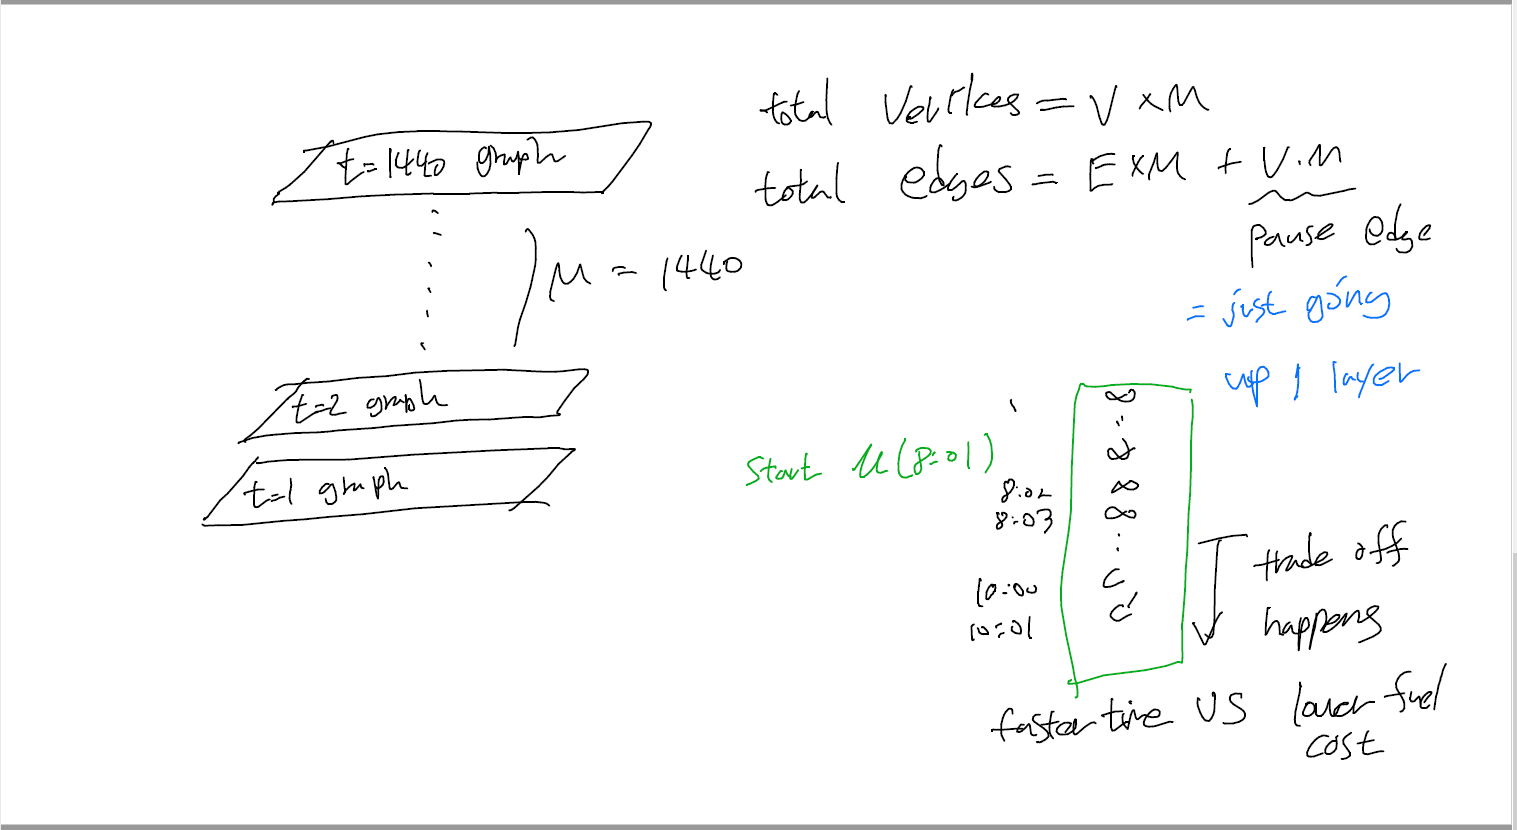 total vertices = V × M
total edges = E × M + V.M
pause edge
= just going
up 1 layer
t=1440 graph
M = 1440
t=2 graph
t=1 graph
Start u(8:01)
∞
∞
8:02 ∞
8:03 ∞
10:00 C
10:01 C'
trade off
happens
faster time VS lower fuel
cost